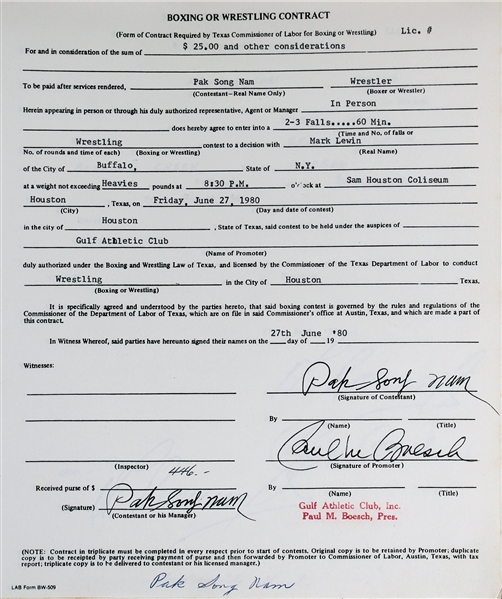 BOXING OR WRESTLING CONTRACT
(Form of Contract Required by Texas Commissioner of Labor for Boxing or Wrestling) Lic. #
For and in consideration of the sum of $ 25.00 and other considerations
To be paid after services rendered, Pak Song Nam Wrestler
(Contestant—Real Name Only) (Boxer or Wrestler)
Herein appearing in person or through his duly authorized representative, Agent or Manager In Person
does hereby agree to enter into a 2-3 Falls.....60 Min.
(Time and No. of falls or
Wrestling contest to a decision with Mark Lewin
No. of rounds and time of each) (Boxing or Wrestling) (Real Name)
of the City of Buffalo, State of N.Y.
at a weight not exceeding Heavies pounds at 8:30 P.M. o'clock at Sam Houston Coliseum
Houston, Texas, on Friday, June 27, 1980
(City) (Day and date of contest)
in the city of Houston, State of Texas, said contest to be held under the auspices of
Gulf Athletic Club
(Name of Promoter)
duly authorized under the Boxing and Wrestling Law of Texas, and licensed by the Commissioner of the Texas Department of Labor to conduct
Wrestling in the City of Houston Texas.
(Boxing or Wrestling)
It is specifically agreed and understood by the parties hereto, that said boxing contest is governed by the rules and regulations of the
Commissioner of the Department of Labor of Texas, which are on file in said Commissioner's office at Austin, Texas, and which are made a part of
this contract.
In Witness Whereof, said parties have hereunto signed their names on the 27th day of June 19 '80
Witnesses:
Pak Song Nam
(Signature of Contestant)
By
(Name) (Title)
Paul M. Boesch
(Inspector) (Signature of Promoter)
446.-
Received purse of $ By
(Name) (Title)
(Signature) Pak Song Nam
(Contestant or his Manager)
Gulf Athletic Club, Inc.
Paul M. Boesch, Pres.
(NOTE: Contract in triplicate must be completed in every respect prior to start of contests. Original copy is to be retained by Promoter; duplicate
copy is to be receipted by party receiving payment of purse and then forwarded by Promoter to Commissioner of Labor, Austin, Texas, with tax
report; triplicate copy is to be delivered to contestant or his licensed manager.)
Pak Song Nam
LAB Form BW-509